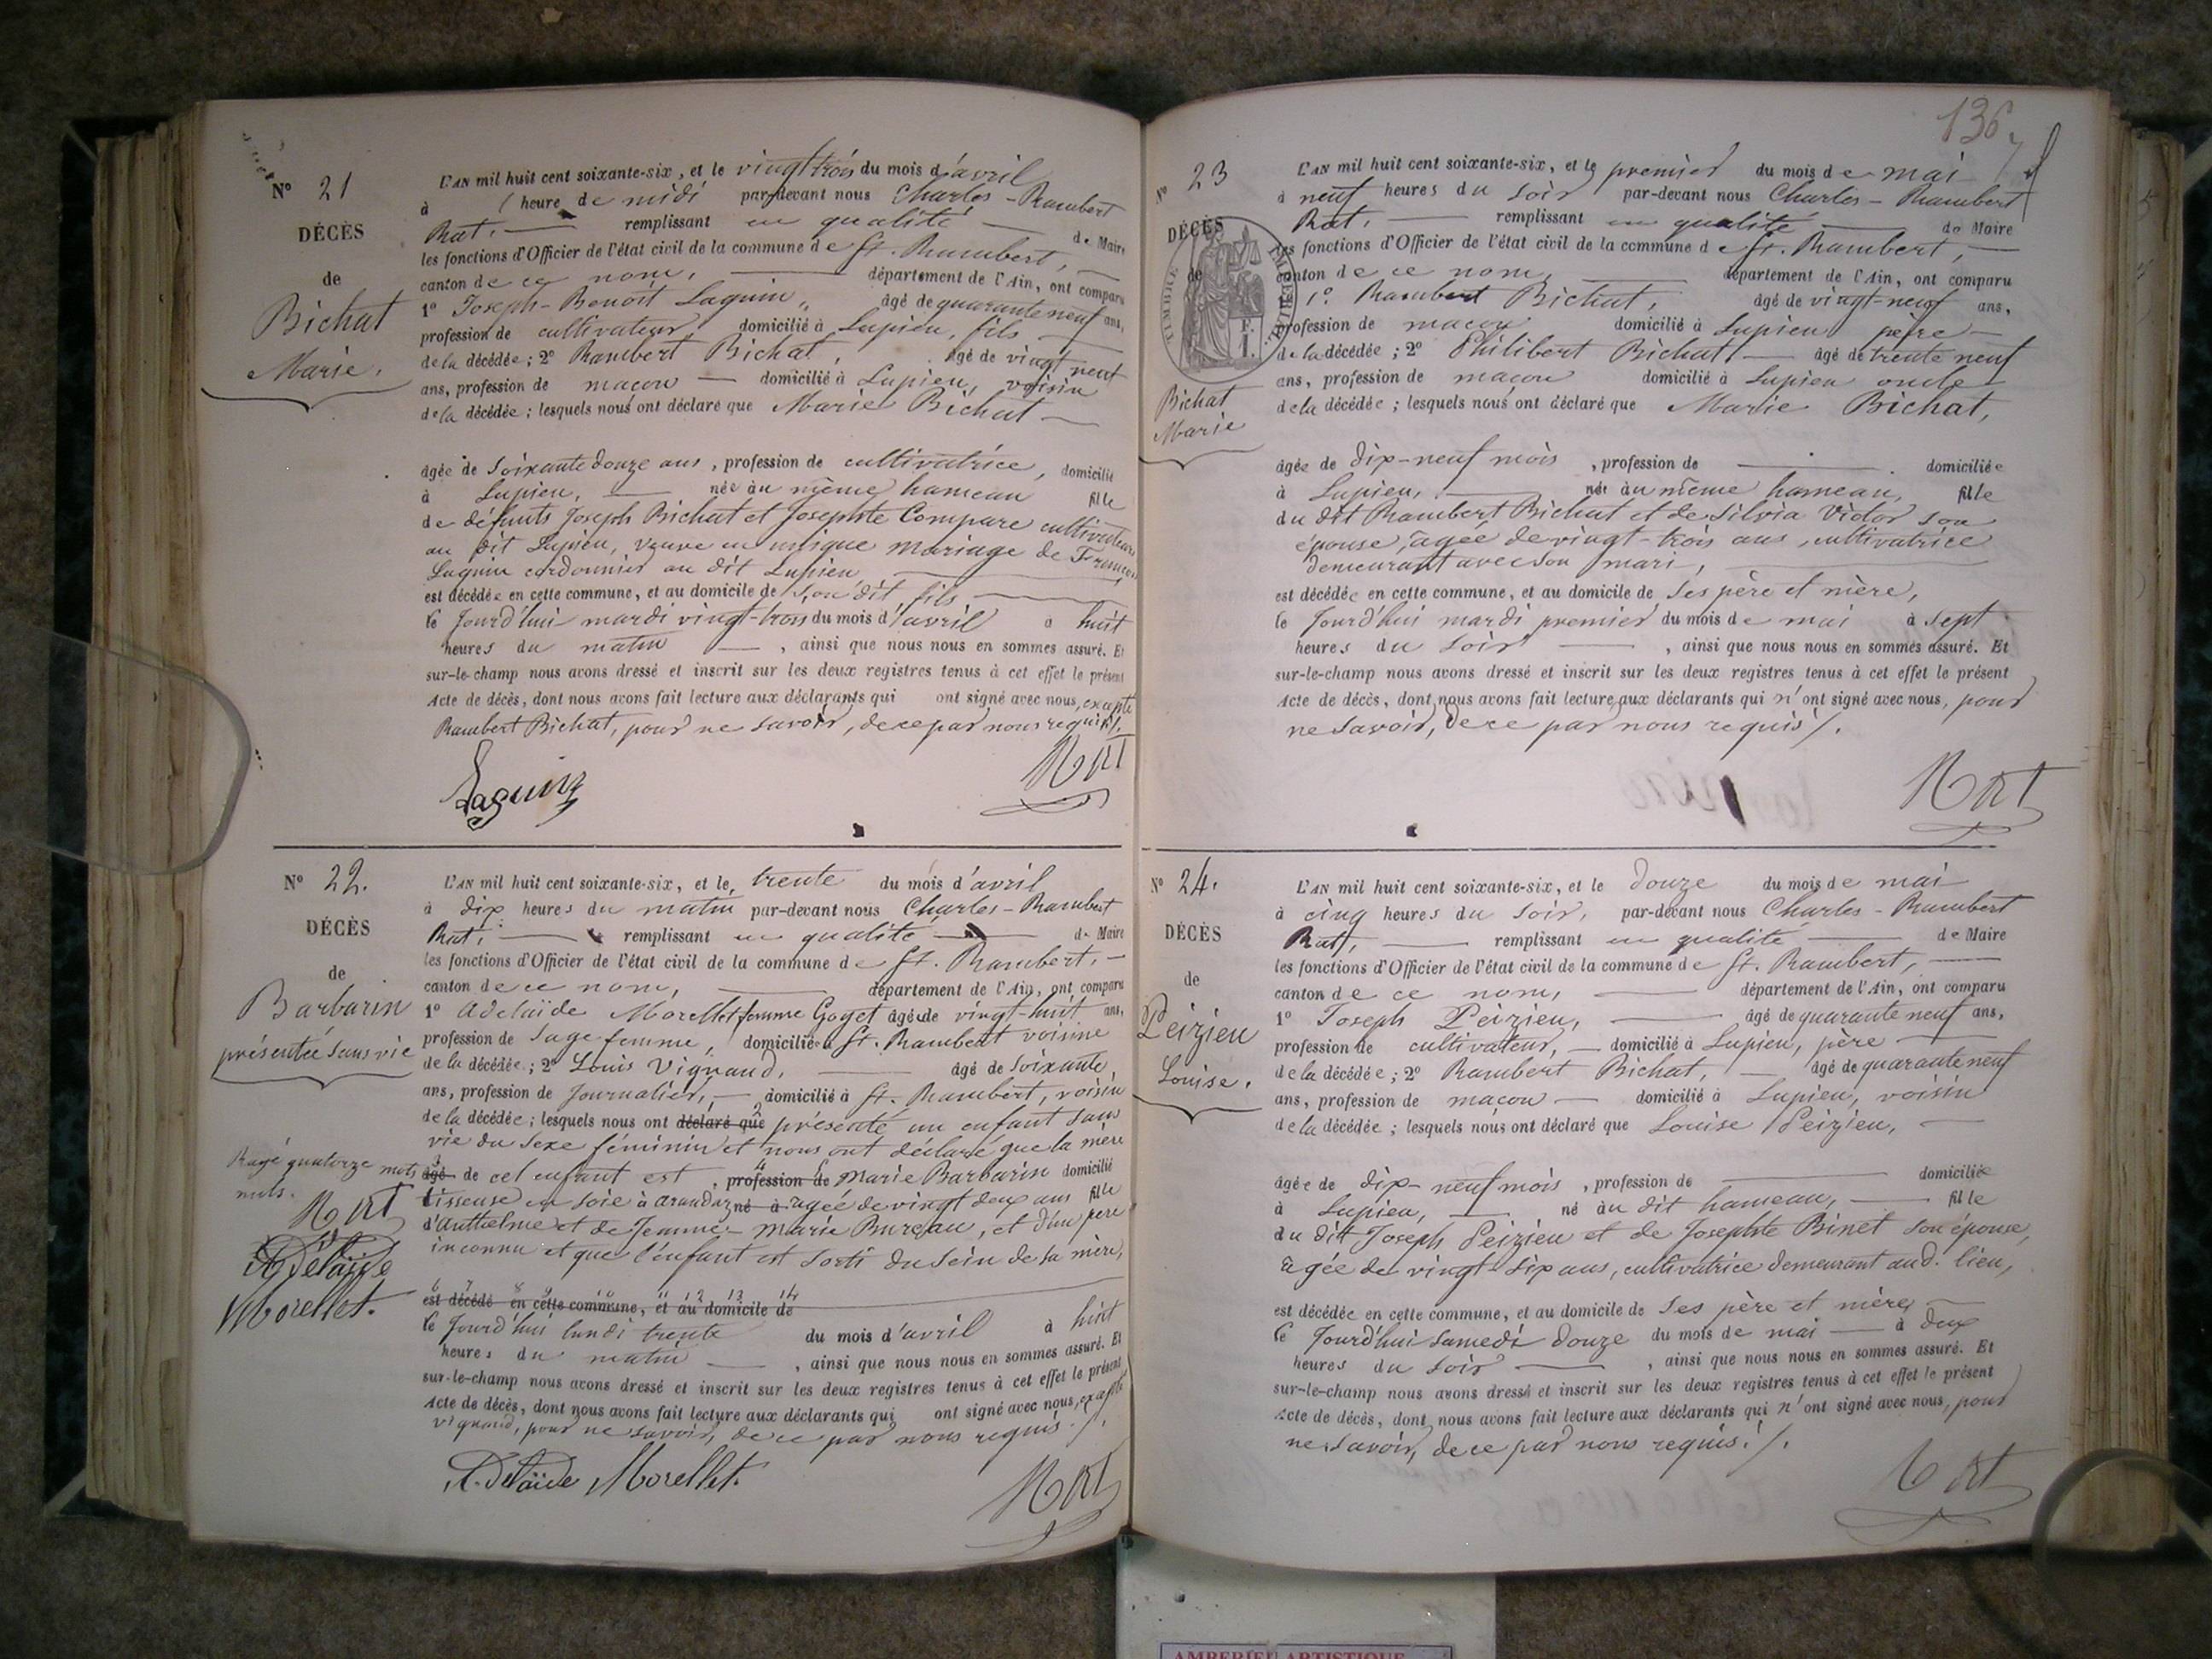 N° 21
DÉCÈS
de
Bichat
Marie.
L'AN mil huit cent soixante-six, et le vingt trois du mois d'avril
à 1 heure de midi par-devant nous Charles-Rambert
Rat, remplissant en qualité de Maire
les fonctions d'Officier de l'état civil de la commune de St. Rambert,
canton de ce nom, département de l'Ain, ont comparu
1° Joseph-Benoit Laguin, âgé de quarante neuf ans,
profession de cultivateur domicilié à Lupieu, fils
de la décédée ; 2° Rambert Bichat, âgé de vingt neuf
ans, profession de maçon domicilié à Lupieu, voisin
de la décédée ; lesquels nous ont déclaré que Marie Bichat
âgée de soixante douze ans, profession de cultivatrice, domicilié
à Lupieu, née au même hameau fille
de défunts Joseph Bichat et Josephte Compare cultivateurs
au dit Lupieu, veuve en unique mariage de François
Laguin cordonnier au dit Lupieu
est décédée en cette commune, et au domicile de son dit fils
le jourd'hui mardi vingt-trois du mois d'avril à huit
heures du matin, ainsi que nous nous en sommes assuré. Et
sur-le-champ nous avons dressé et inscrit sur les deux registres tenus à cet effet le présent
Acte de décès, dont nous avons fait lecture aux déclarants qui ont signé avec nous, excepté
Rambert Bichat, pour ne savoir, de ce par nous requis /.
Laguin Rat
N° 22.
DÉCÈS
de
Barbarin
présentée sans vie
L'AN mil huit cent soixante-six, et le trente du mois d'avril
à dix heures du matin par-devant nous Charles-Rambert
Rat, remplissant en qualité de Maire
les fonctions d'Officier de l'état civil de la commune de St. Rambert,
canton de ce nom, département de l'Ain, ont comparu
1° Adelaïde Morellet femme Goyet âgée de vingt-huit ans,
profession de sage femme, domiciliée à St. Rambert voisine
de la décédée ; 2° Louis Vignand, âgé de soixante
ans, profession de journalier, domicilié à St. Rambert, voisin
de la décédée ; lesquels nous ont déclaré que présenté un enfant sans
vie du sexe féminin et nous ont déclaré que la mère
âgé de cet enfant est, profession de Marie Barbarin domicilié
tisseuse en soie à Arandaz né à agée de vingt deux ans fille
d'Anthelme et de Jeanne-Marie Bureau, et d'un père
inconnu et que l'enfant est sorti du sein de sa mère,
est décédé en cette commune, et au domicile de
le jourd'hui lundi trente du mois d'avril à huit
heures du matin, ainsi que nous nous en sommes assuré. Et
sur-le-champ nous avons dressé et inscrit sur les deux registres tenus à cet effet le présent
Acte de décès, dont nous avons fait lecture aux déclarants qui ont signé avec nous, excepté
Vignand, pour ne savoir, de ce par nous requis /.
Adelaïde Morellet. Rat
Rayé quatorze mots
nuls.
Rat
Adelaïde
Morellet.
136
N° 23
DÉCÈS
de
TIMBRE IMPERIAL
F.
1.
Bichat
Marie
L'AN mil huit cent soixante-six, et le premier du mois de mai
à neuf heures du soir par-devant nous Charles-Rambert
Rat, remplissant en qualité de Maire
les fonctions d'Officier de l'état civil de la commune de St. Rambert,
canton de ce nom, département de l'Ain, ont comparu
1° Rambert Bichat, âgé de vingt-neuf ans,
profession de maçon domicilié à Lupieu père
de la décédée ; 2° Philibert Bichat, âgé de trente neuf
ans, profession de maçon domicilié à Lupieu oncle
de la décédée ; lesquels nous ont déclaré que Marie Bichat,
âgée de dix-neuf mois, profession de domiciliée
à Lupieu, née au même hameau, fille
du dit Rambert Bichat et de Silvia Victor son
épouse, agée de vingt-trois ans, cultivatrice
demeurant avec son mari,
est décédée en cette commune, et au domicile de ses père et mère,
le jourd'hui mardi premier du mois de mai à sept
heures du soir, ainsi que nous nous en sommes assuré. Et
sur-le-champ nous avons dressé et inscrit sur les deux registres tenus à cet effet le présent
Acte de décès, dont nous avons fait lecture aux déclarants qui n'ont signé avec nous, pour
ne savoir, de ce par nous requis /.
Rat
N° 24.
DÉCÈS
de
Peizieu
Louise.
L'AN mil huit cent soixante-six, et le douze du mois de mai
à cinq heures du soir, par-devant nous Charles-Rambert
Rat, remplissant en qualité de Maire
les fonctions d'Officier de l'état civil de la commune de St. Rambert,
canton de ce nom, département de l'Ain, ont comparu
1° Joseph Peizieu, âgé de quarante neuf ans,
profession de cultivateur, domicilié à Lupieu, père
de la décédée ; 2° Rambert Bichat, âgé de quarante neuf
ans, profession de maçon domicilié à Lupieu, voisin
de la décédée ; lesquels nous ont déclaré que Louise Peizieu,
âgée de dix-neuf mois, profession de domiciliée
à Lupieu, né au dit hameau, fille
du dit Joseph Peizieu et de Josephte Binet son épouse,
agée de vingt-six ans, cultivatrice demeurant aud. lieu,
est décédée en cette commune, et au domicile de ses père et mère
le jourd'hui samedi douze du mois de mai à deux
heures du soir, ainsi que nous nous en sommes assuré. Et
sur-le-champ nous avons dressé et inscrit sur les deux registres tenus à cet effet le présent
Acte de décès, dont nous avons fait lecture aux déclarants qui n'ont signé avec nous, pour
ne savoir, de ce par nous requis /.
Rat
AMBERIEU ARTISTIQUE